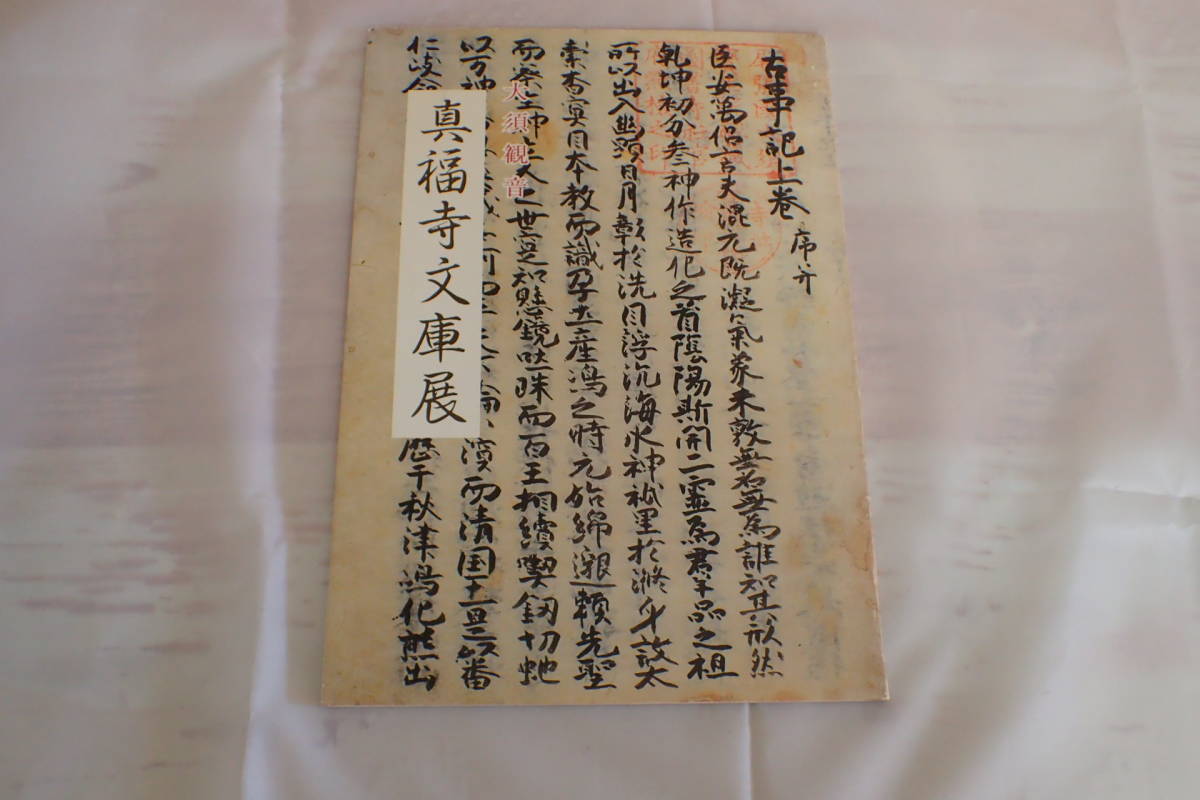 古事記上卷 序并
臣安萬侶言夫混元既凝氣象未敦無名無為誰知其形然
乾坤初分参神作造化之首陰陽斯開二霊為群品之祖
所以出入幽顕日月彰於洗目浮沉海水神祇呈於滌身故太
素杳冥因本教而識孕土産嶋之時元始綿邈頼先聖
而察生神立人之世寔知懸鏡吐珠而百王相續喫釼切蛇
以万神 濱而清国土是以番
仁岐命 歴千秋津嶋化熊出
大須観音
真福寺文庫展